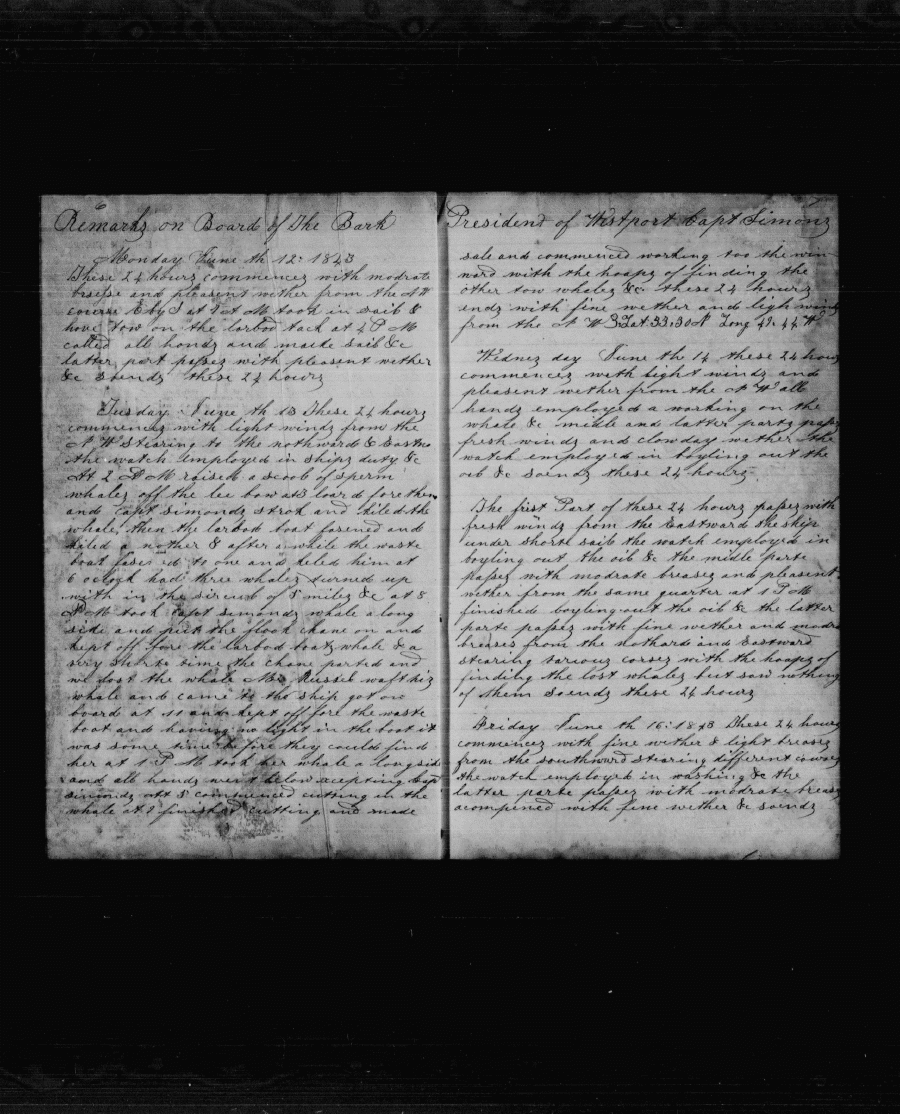 6
Remarks on Board of The Bark
Monday June th 12: 1843
These 24 hours commences with modrate
breise and pleasent wether from the N W
course E by S at 9 at M took in sail &
hove tow on the larbod tack at 4 P M
called all hands and maide sail &c
latter part passes with pleasent wether
&c soends these 24 hours
Tusday June th 13 These 24 hours
commences with light winds from the
N W Stearing to the nothward & Eastno
the watch employed in ships duty &c
At 2 P M raised a scoob of sperm
whales off the lee bow at 3 loard fore them
and Capt simonds strok and kiled the
whale then the larbod boat fasened and
kiled a nother & after a while the waste
boat fasened to one and kiled him at
6 oclock had three whales turned up
with in the sircund of 8 miles &c at 8
P M took Capt semonds whale a long
side and put the flook chane on and
kept off fore the larbod boats whale & a
very shorte time the chane parted and
we lost the whale Mr Russel waft his
whale and came to the ship got on
board at 11 and kept off fore the waste
boat and having no light in the boat it
was some time before they could find
her at 1 P M took her whale a longside
and all hands went below acepting Capt
simonds att 5 commenced cutting in the
whale at 9 finished cutting and made
7
President of Westport Capt Simons
sale and commenced working too the win
ward with the hoaps of finding the
other tow whales &c these 24 hours
ends with fine wether and ligh winds
from the N W Lat 33:30 N Long 49:44 W
Wednez day June th 14 these 24 hours
commences with light winds and
pleasent wether from the N W all
hands employed a working on the
whale &c midle and latter parts passes
fresh winds and clowday wether the
watch employed in boyling out the
oil &c soends these 24 hours
The first Part of these 24 hours passes with
fresh winds from the Eastward the ship
under shorte sail the watch employed in
boyling out the oil &c the midle parte
passes with modrate breases and pleasent
wether from the same quarter at 1 P M
finished boyling out the oil &c the latter
parte passes with fine wether and modra
breases from the nothard and Eastward
stearing various corses with the hoaps of
finding the lost whales but saw nothing
of them soends these 24 hours
Friday June th 16: 1843 These 24 hours
commences with fine wether & light breases
from the southward stearing different courses
the watch employed in washing &c the
latter parte passes with modrate breases
acompened with fine wether &c soends